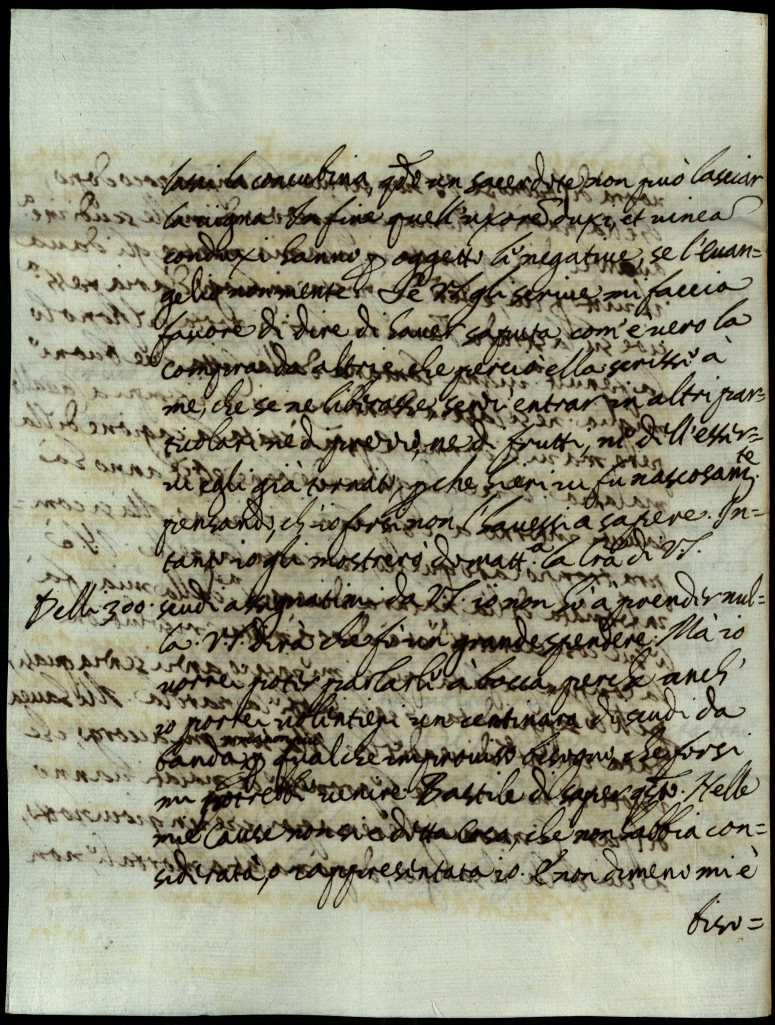 lassi la concubina, q̃do un sacerdote non può lasciar
la uigna. In fine quell'uxorẽ duxi, et uinea
conduxi hanno p oggetto li negatiue, se l'euan=
gelio non mente. Se VS. gli scriue mi faccia
fauore di dire di hauer saputa com'è uero la
compra da altri, e che perciò ella scrissi à
me, che se ne liberasse, senz'entrar in altri par=
ticolari nè di prezzi, nè di frutti, nè dell'esser=
ui egli già tornato, p che hieri ui fu nascosam.te
pensando, ch'io forsi non l'hauessi a sapere. In=
tanto io gli mostrerò domatt.a la lrã di VS.
Delli 300. scudi assignatimi da VS. io non hò a prender nul=
la. VS. dirà che fò un grande spendere. Mà io
uorrei poter parlarli à bocca, perche anch'
io porrei uolentieri un centinaro di scudi da
banda p qualche improuiso bisogno, che forsi
mi potrebbe uenire. Bastile di saper q̃sto. Nelle
mie Cause non si è detta cosa, che non habbia con=
siderata, o rappresentata io. E non dimeno mi è
biso=